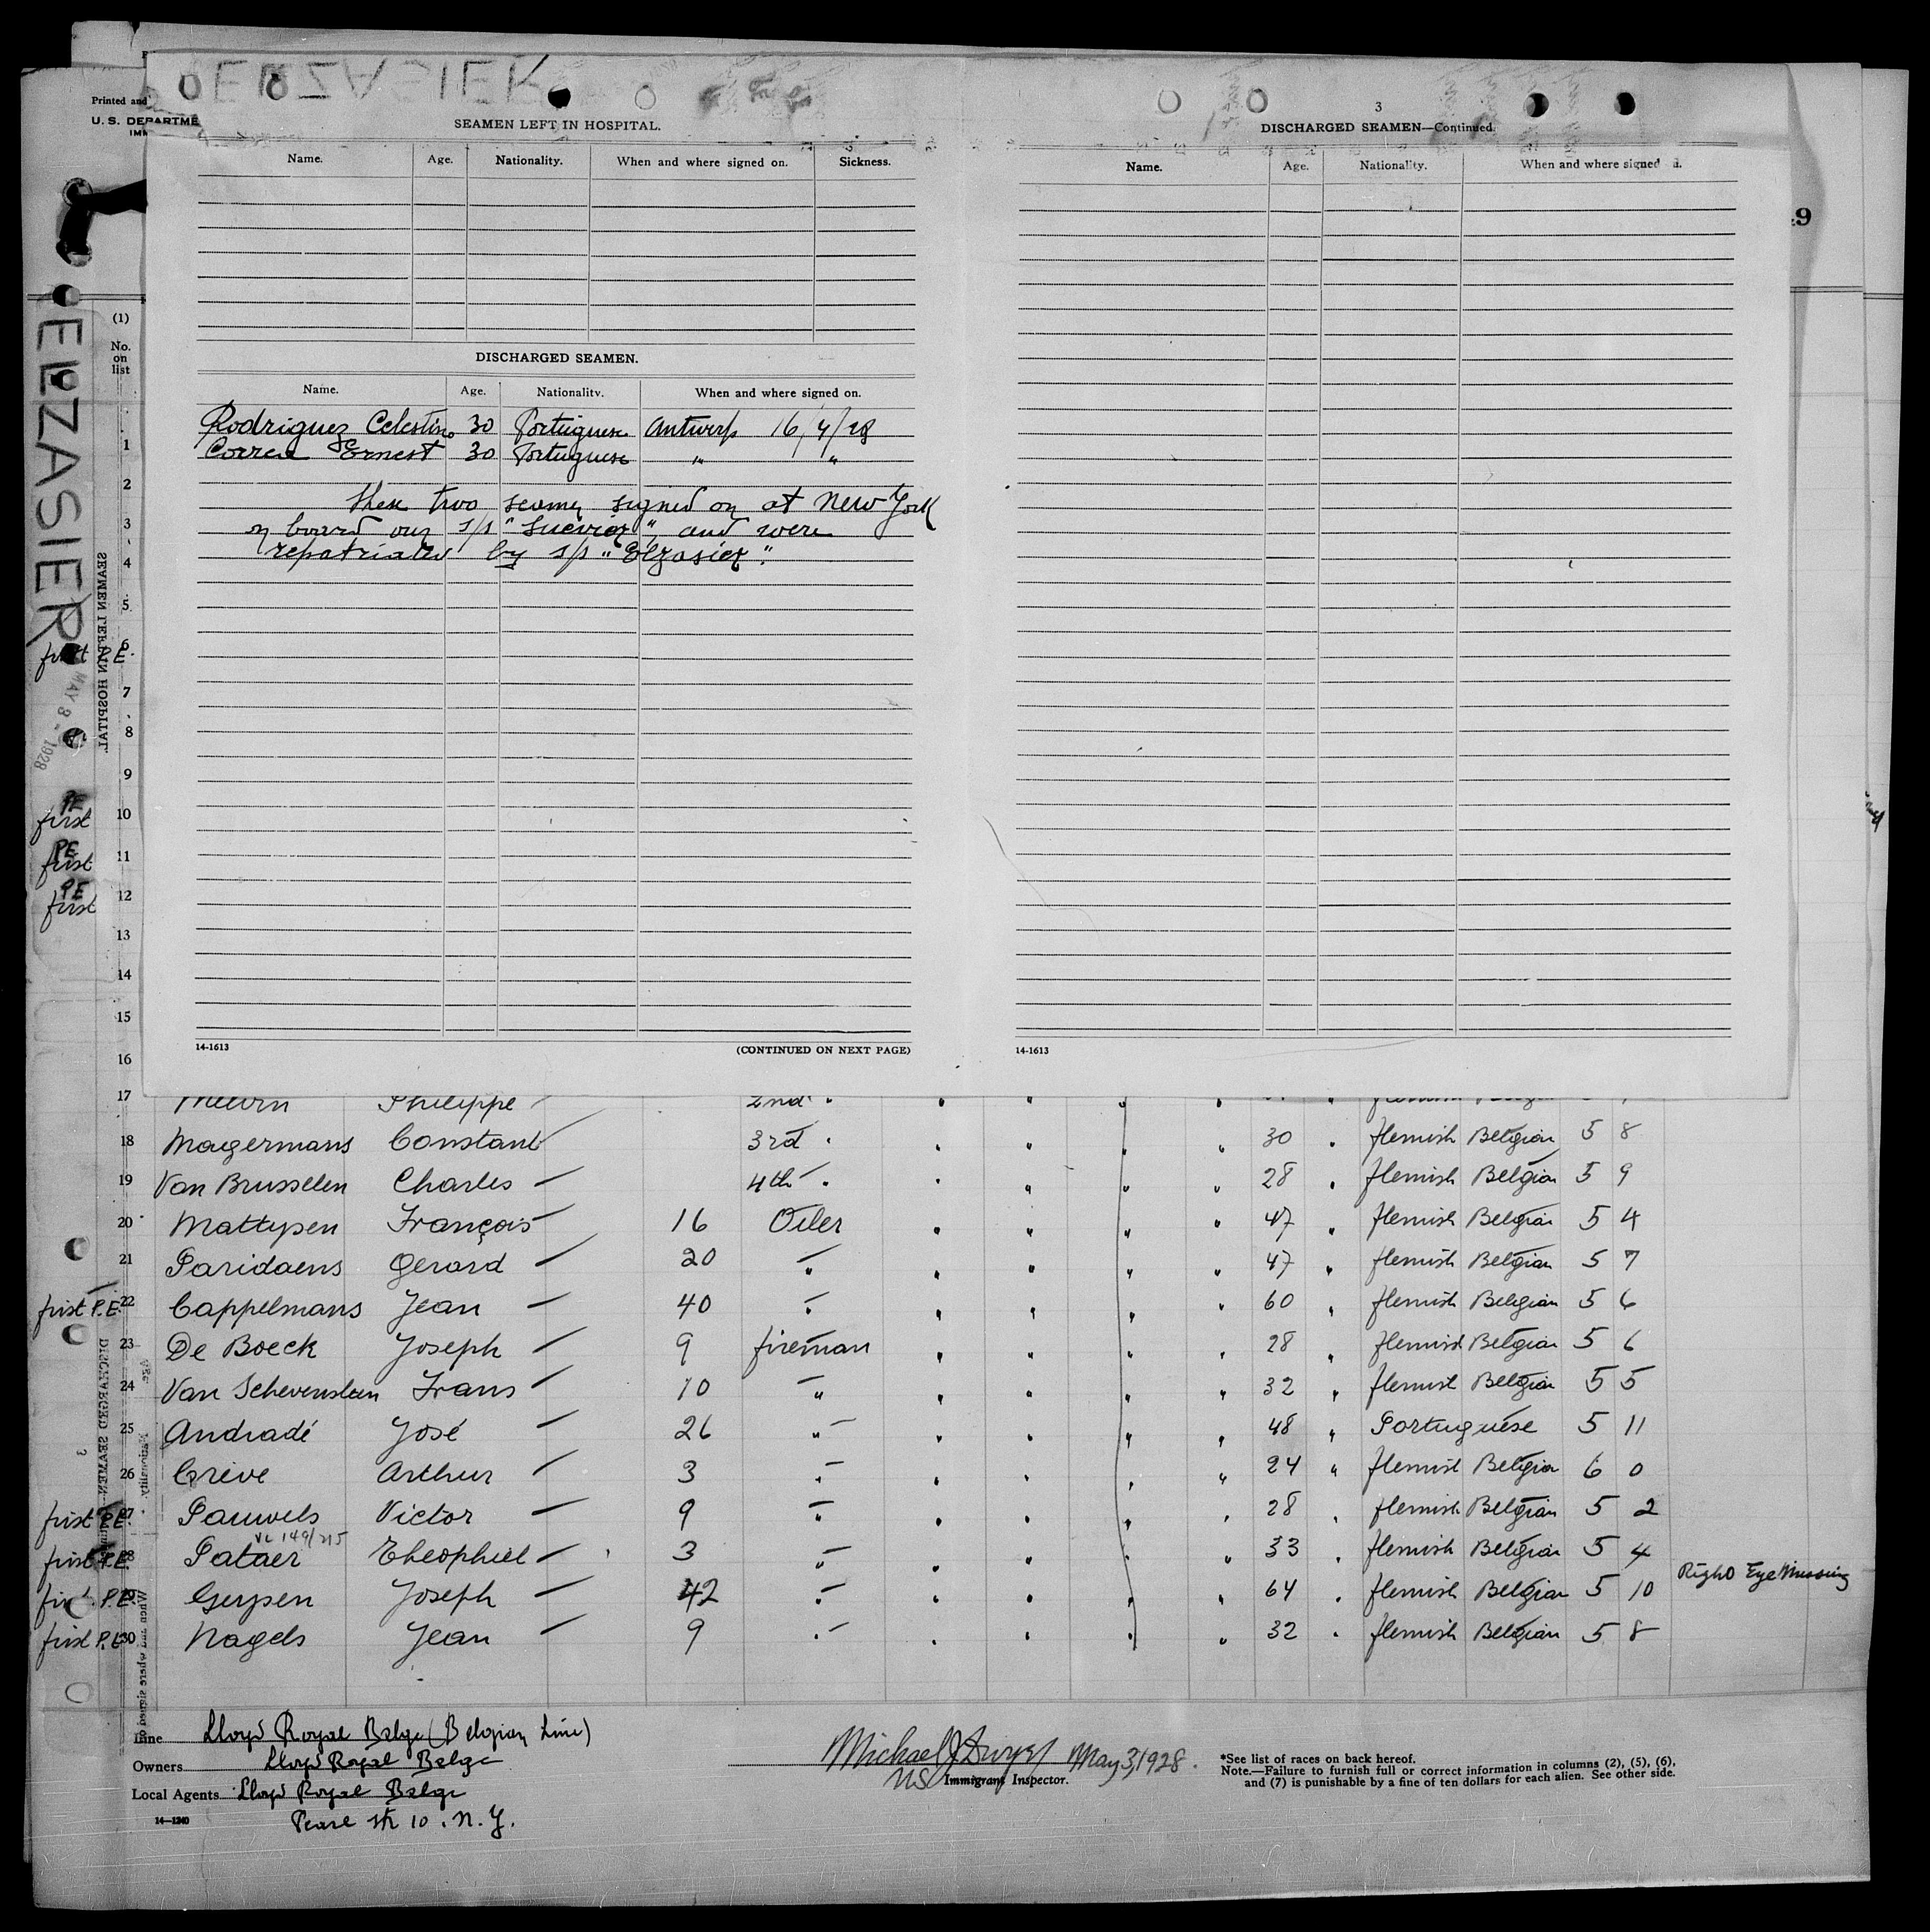 Printed and
U. S. DEPARTME
ELZASIER
MAY 3 - 1928
SEAMEN LEFT IN HOSPITAL.
Name. Age. Nationality. When and where signed on. Sickness.
DISCHARGED SEAMEN.
Name. Age. Nationality. When and where signed on.
Rodriguez Celestino 30 Portuguese Antwerp 16/4/28
Correa Ernest 30 Portuguese " "
These two seamen signed on at New York
on board our s/s "Suevier", and were
repatriated by s/s "Elzasier".
14-1613 (CONTINUED ON NEXT PAGE)
3
DISCHARGED SEAMEN—Continued
Name. Age. Nationality. When and where signed
14-1613
49
(1)
No.
on
list
1
2
3
4
5
6 first P.E.
7
8
9
10 first PE
11 first PE
12 first PE
13
14
15
16
17 Philippe 2nd "
18 Magermans Constant 3rd " " " " " 30 " flemish Belgian 5 8
19 Van Brusselen Charles 4th " " " " " 28 " flemish Belgian 5 9
20 Mattysen François 16 Oiler " " " " 47 " flemish Belgian 5 4
21 Paridaens Gerard 20 " " " " " 47 " flemish Belgian 5 7
first P.E. 22 Cappelmans Jean 40 " " " " " 60 " flemish Belgian 5 6
23 De Boeck Joseph 9 fireman " " " " 28 " flemish Belgian 5 6
24 Van Schevensteen Frans 10 " " " " " 32 " flemish Belgian 5 5
25 Andradé José 26 " " " " " 48 " Portuguese 5 11
26 Crève Arthur 3 " " " " " 24 " flemish Belgian 6 0
first P.E. 27 Pauwels Victor 9 " " " " " 28 " flemish Belgian 5 2
VL 149/215
first P.E. 28 Pataer Theophiel 3 " " " " " 33 " flemish Belgian 5 4
first P.E. 29 Geypen Joseph 42 " " " " " 64 " flemish Belgian 5 10 Right Eye Missing
first P.E. 30 Nagels Jean 9 " " " " " 32 " flemish Belgian 5 8
Line Lloyd Royal Belge (Belgian Line)
Owners Lloyd Royal Belge
Local Agents Lloyd Royal Belge
Pearl str 10. N.Y.
14—1240
Michael J Dwyer May 3, 1928.
US Immigrant Inspector.
*See list of races on back hereof.
Note.—Failure to furnish full or correct information in columns (2), (5), (6),
and (7) is punishable by a fine of ten dollars for each alien. See other side.